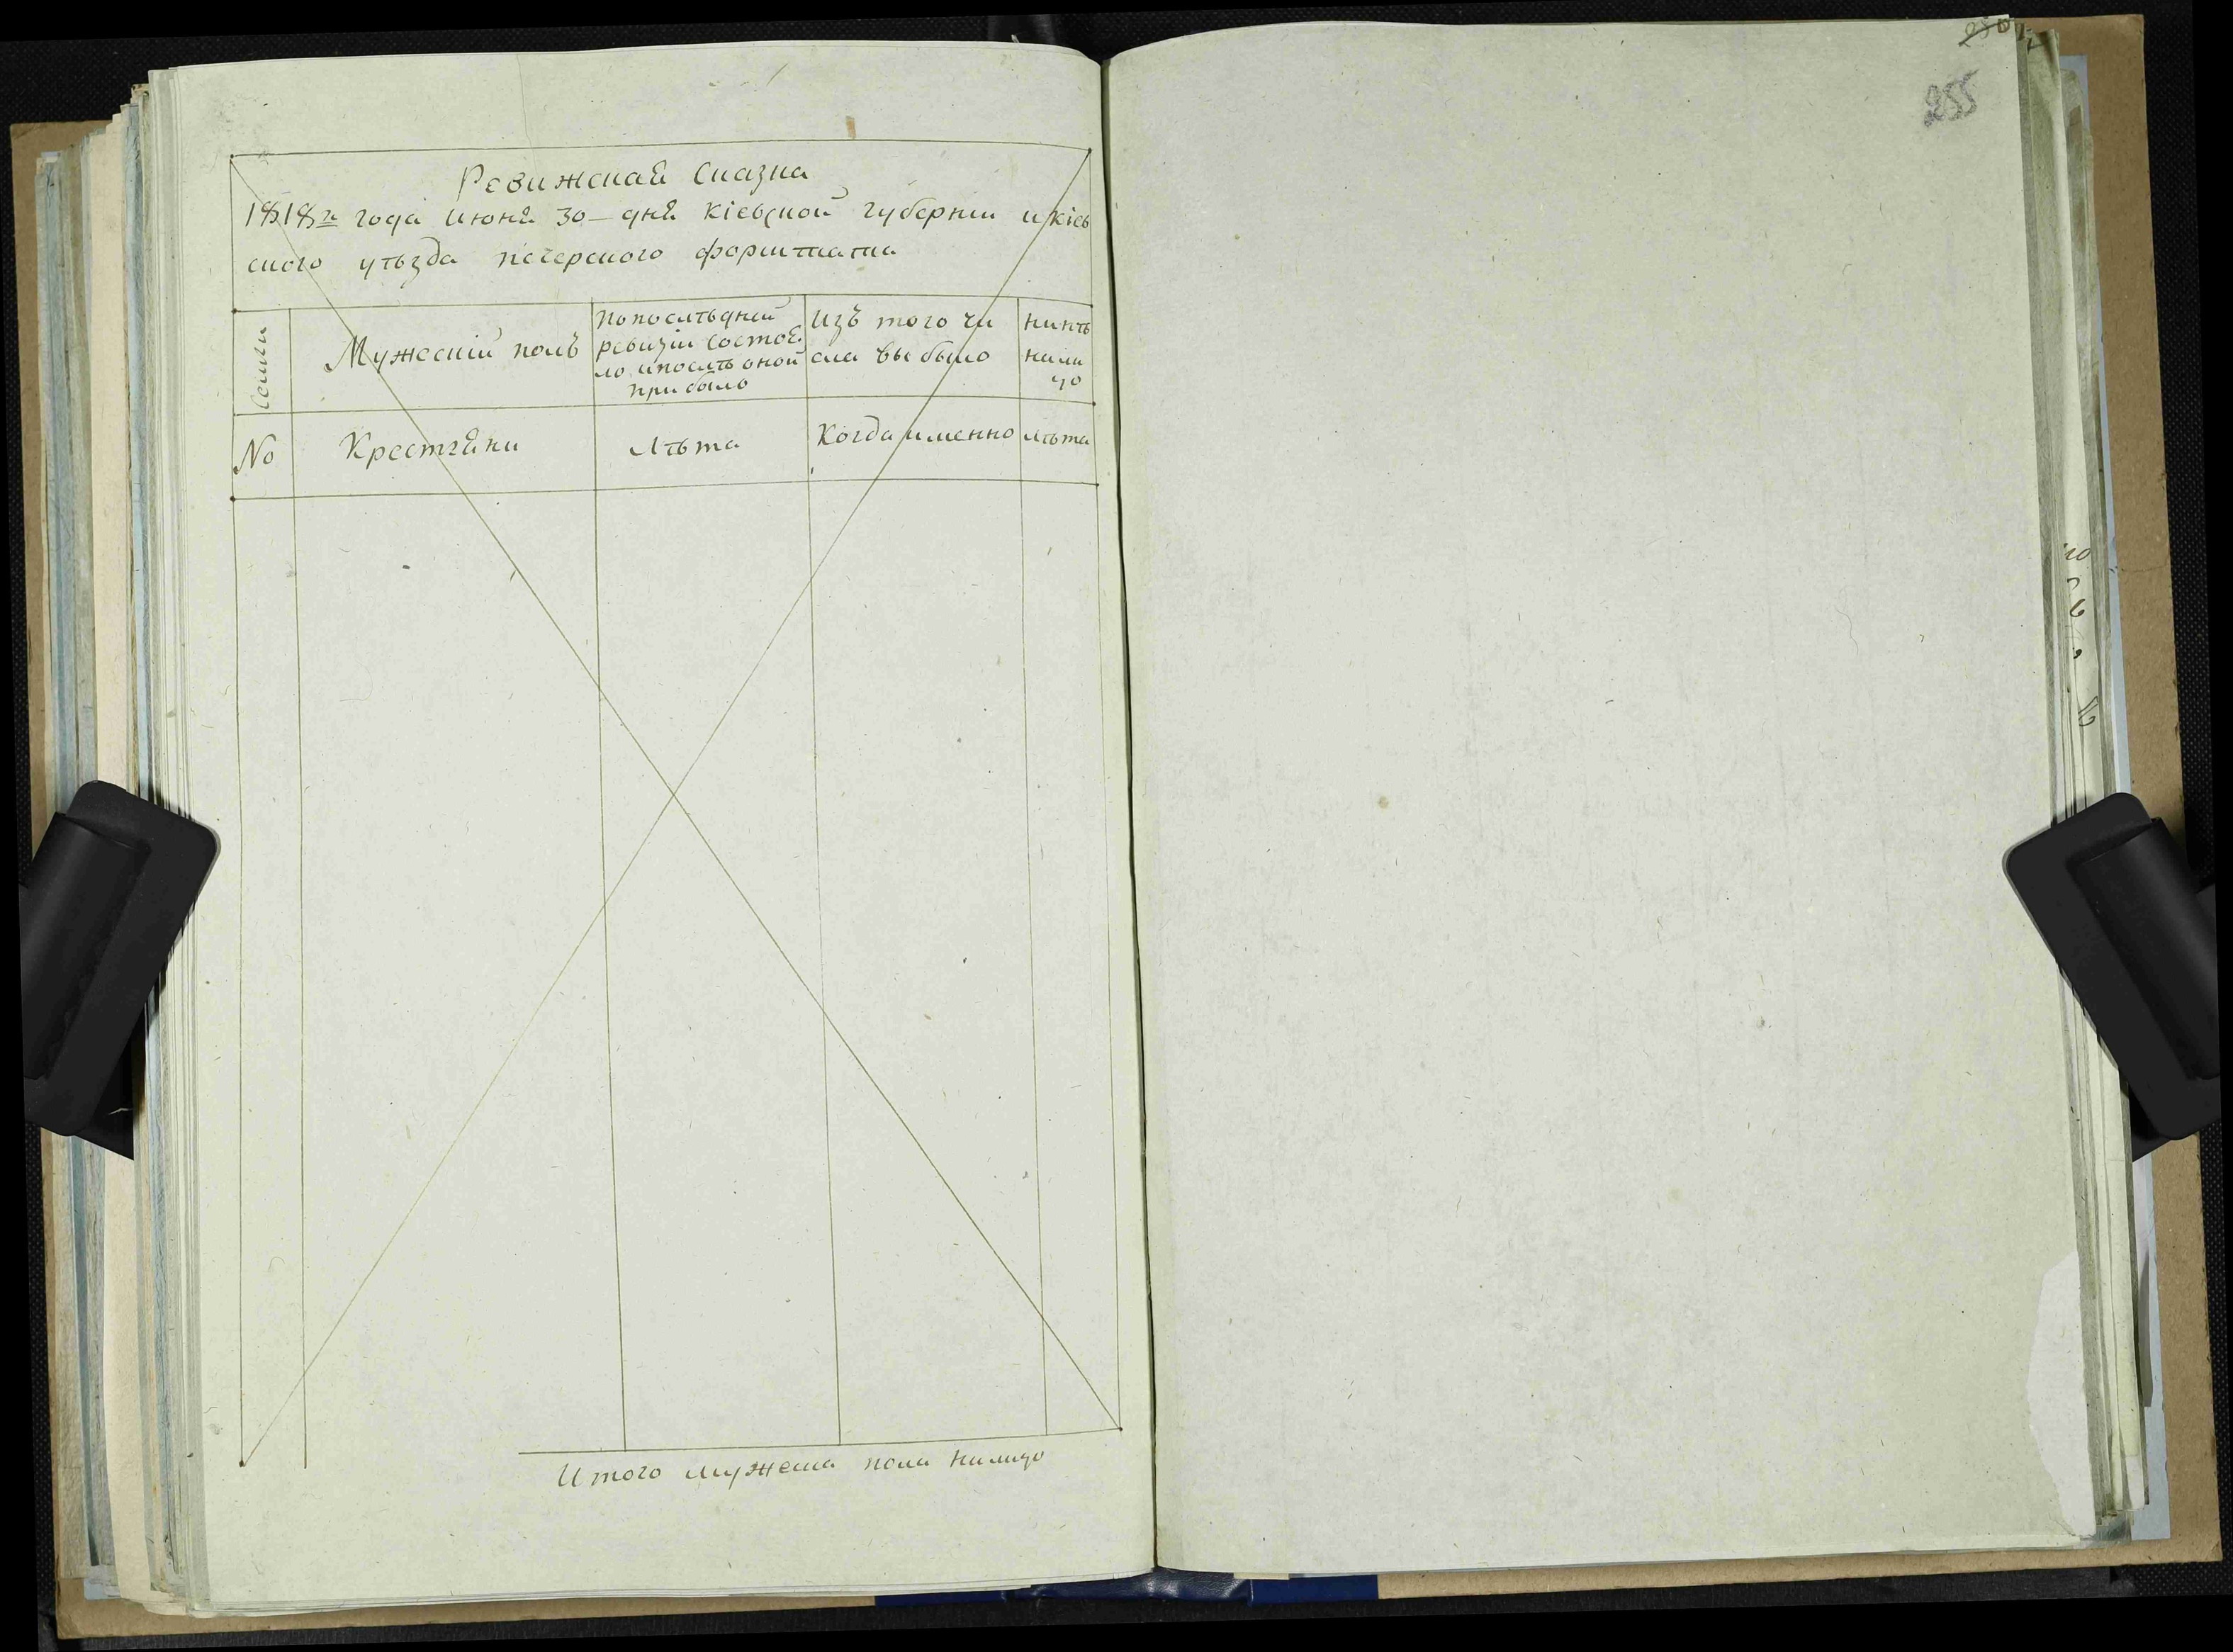 Ревижская Сказка
1818го года июня 30-дня кіевской губерніи и кіев
ского утъзда печерского форштата
Семьи
Мужескій полъ
По послѣдней
ревизіи состоя
ло и послѣ оной
прибыло
Изъ того чи
сла вы было
нынѣ
нали
цо
No
Крестяни
Лѣта
Когда именно
лѣта
Итого мужеска пола налицо
255